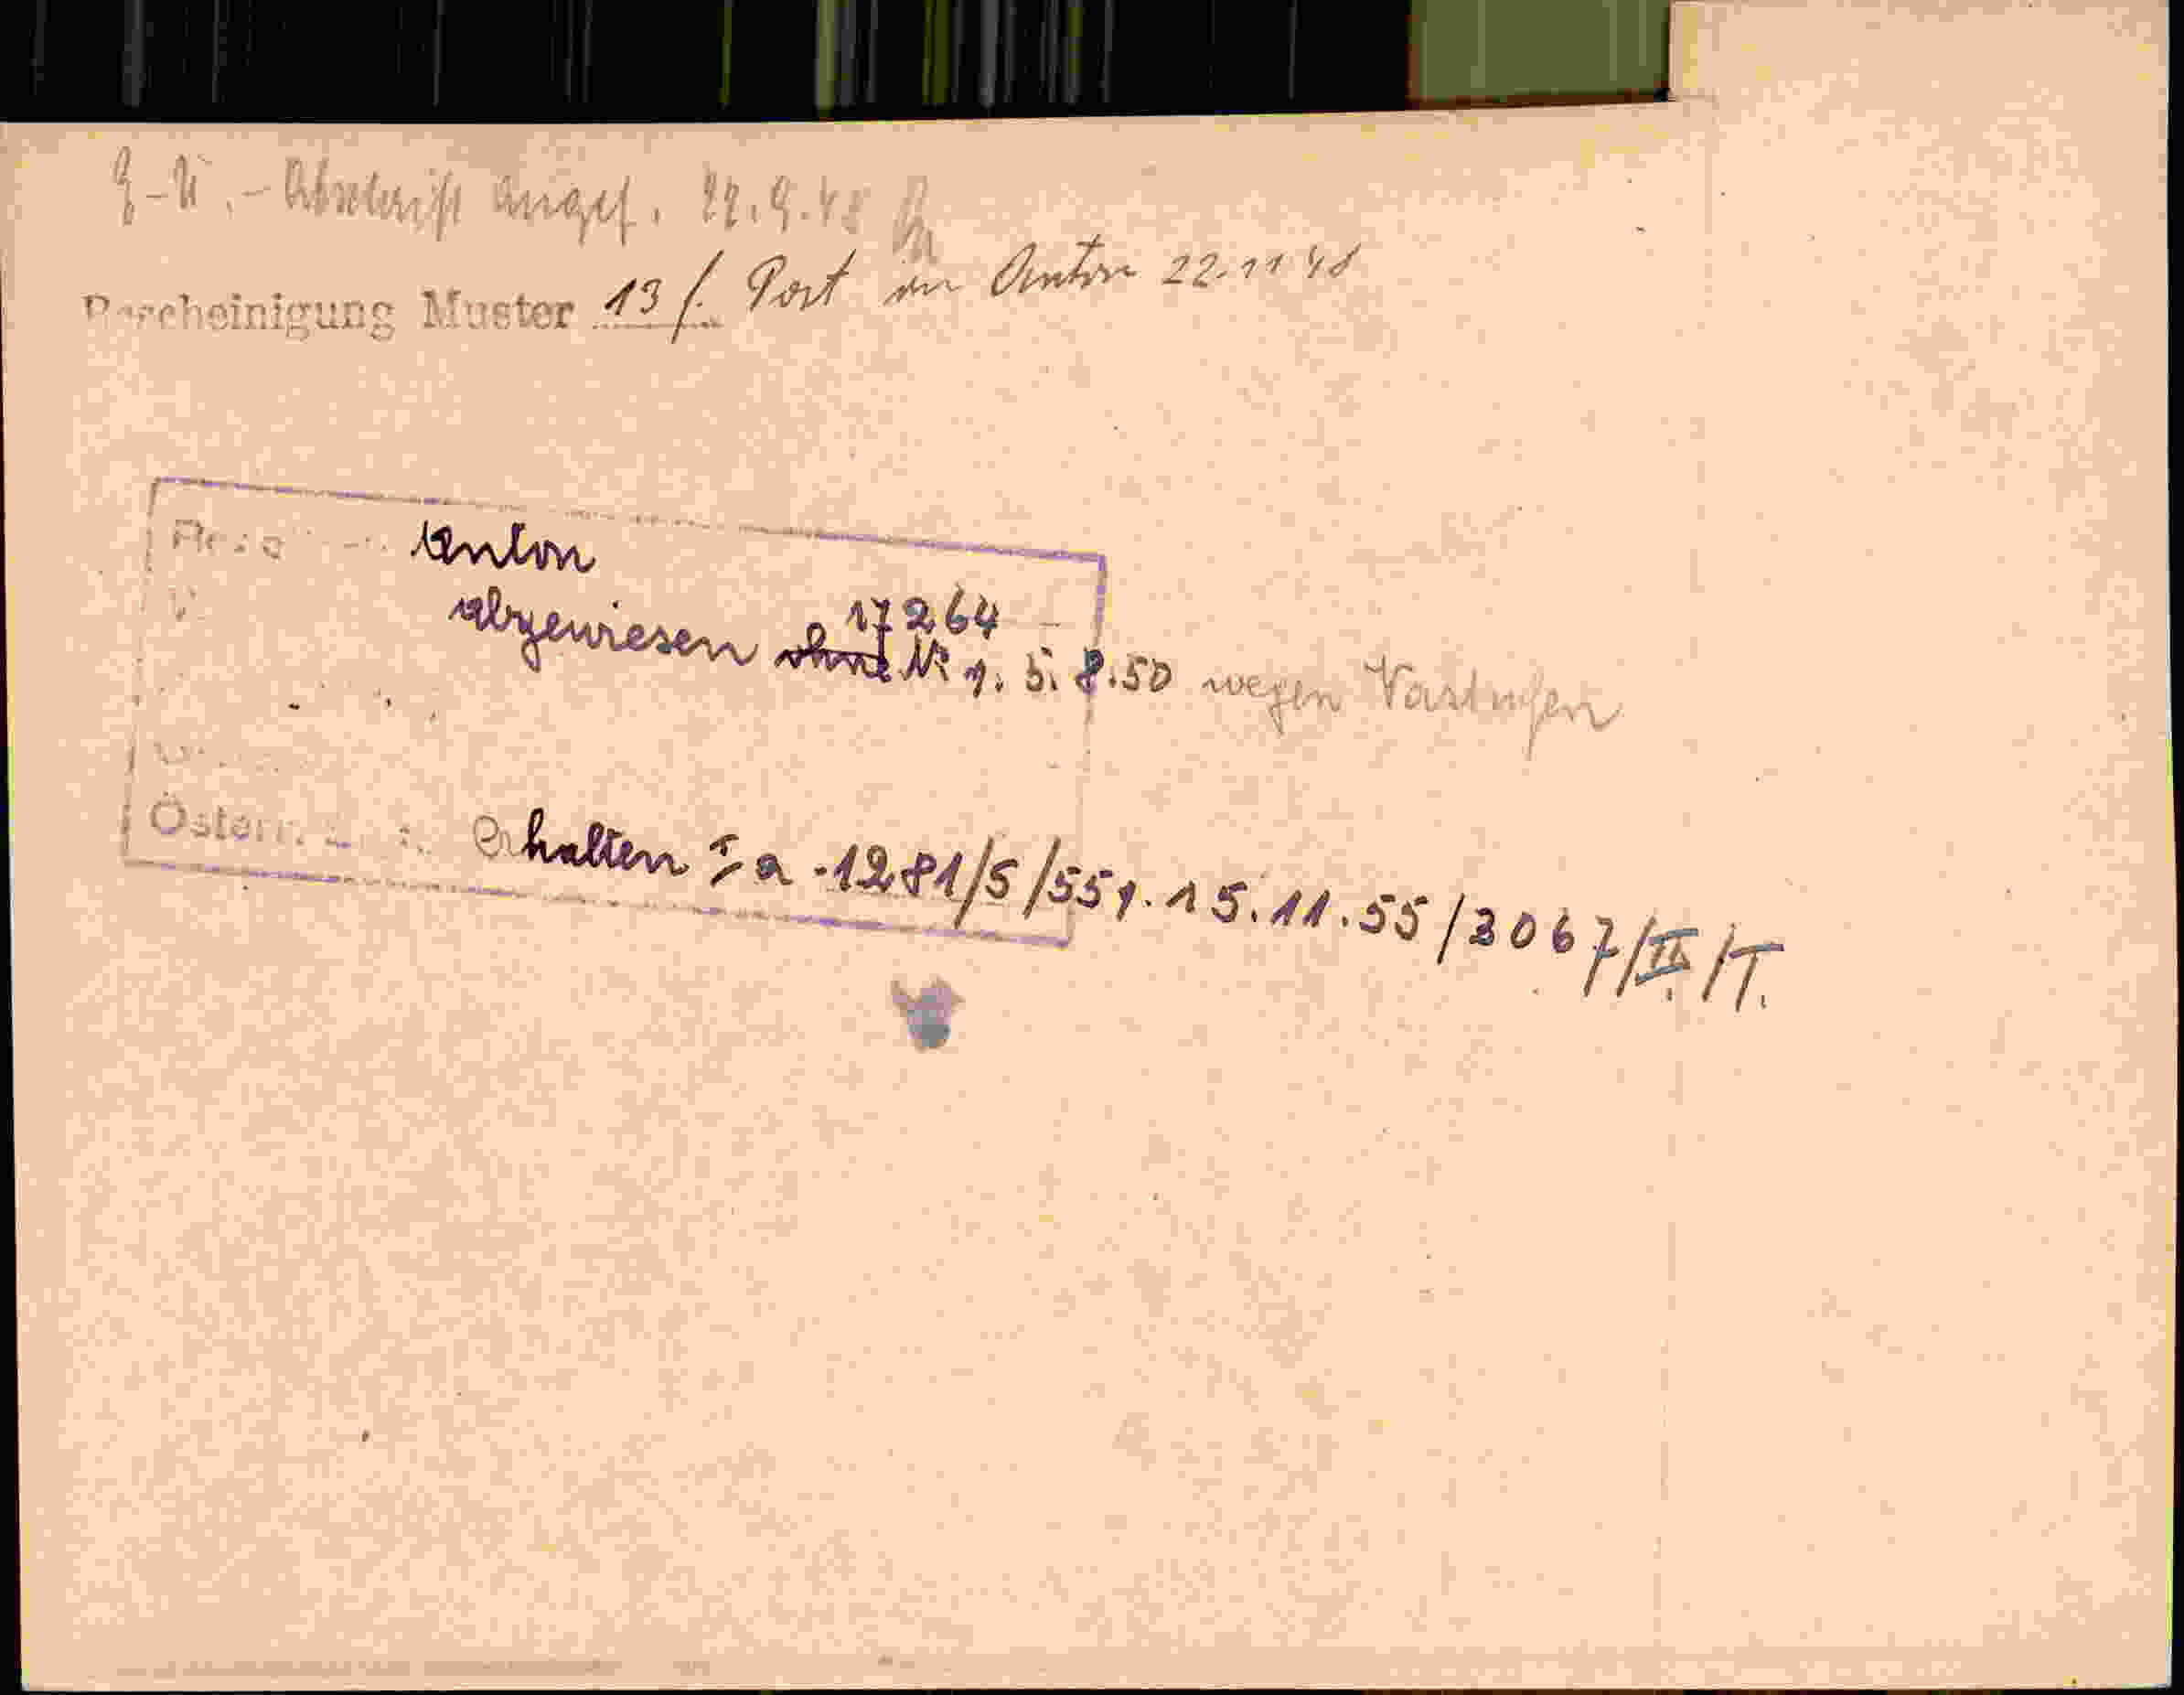 - Abschrift angef. 22.9.48
Bescheinigung Muster 13 f. Post an Anton 22.11 48
Anton
17264
abgewiesen ohne Nr v. 5. 8.50 wegen Vorstrafen
Österr.
Erhalten I a -1281/5/55 v. 15.11.55/3067/II./T.